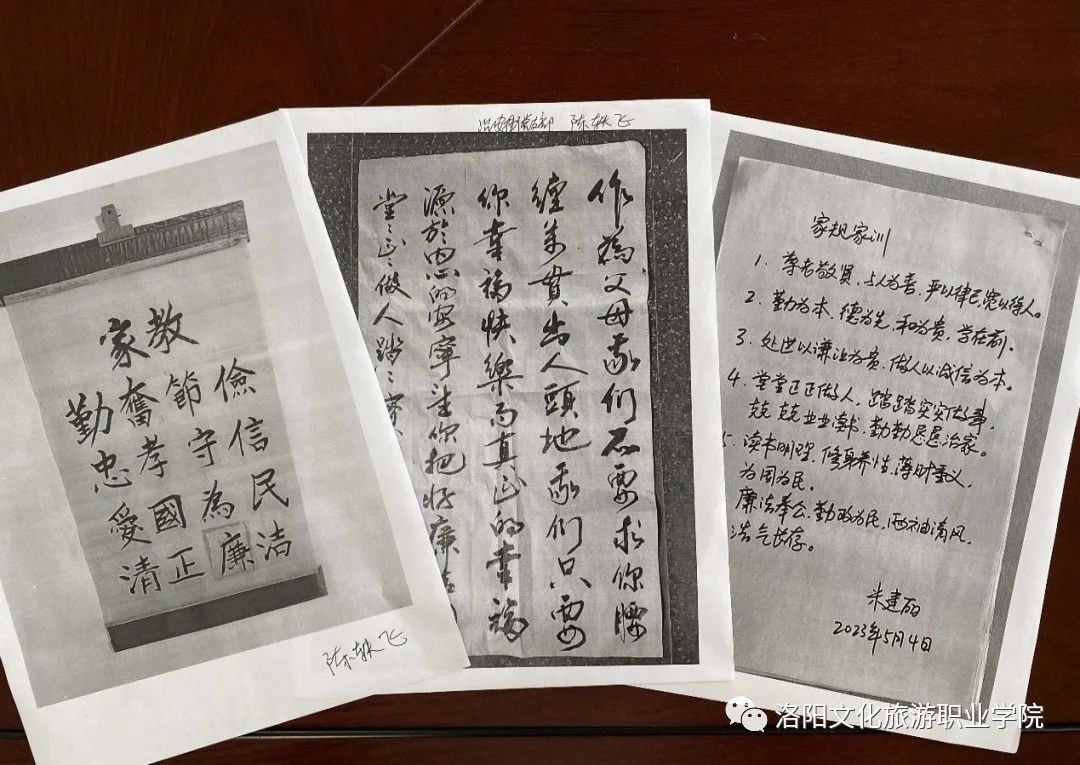 家教
勤奮節儉
忠孝守信
愛國為民
清正廉洁
陈轶飞
陈轶飞
作為父母我们不要求你腰
缠萬貫出人頭地我们只要
你幸福快樂而真正的幸福
源於内心的安寧望你把好廉
堂々正々做人踏々实
家规家训
1. 孝老敬贤,与人为善,严以律己宽以待人。
2. 勤为本,德为先,和为贵,学在前.
3. 处世以谦让为贵,做人以诚信为本。
4. 堂堂正正做人,踏踏实实做事,
兢兢业业读书,勤勤恳恳治家。
5. 读书明理,修身养性,薄财重义,
为国为民。
廉洁奉公,勤政为民,两袖清风,
浩气长存。
建丽
2023年5月4日
洛阳文化旅游职业学院